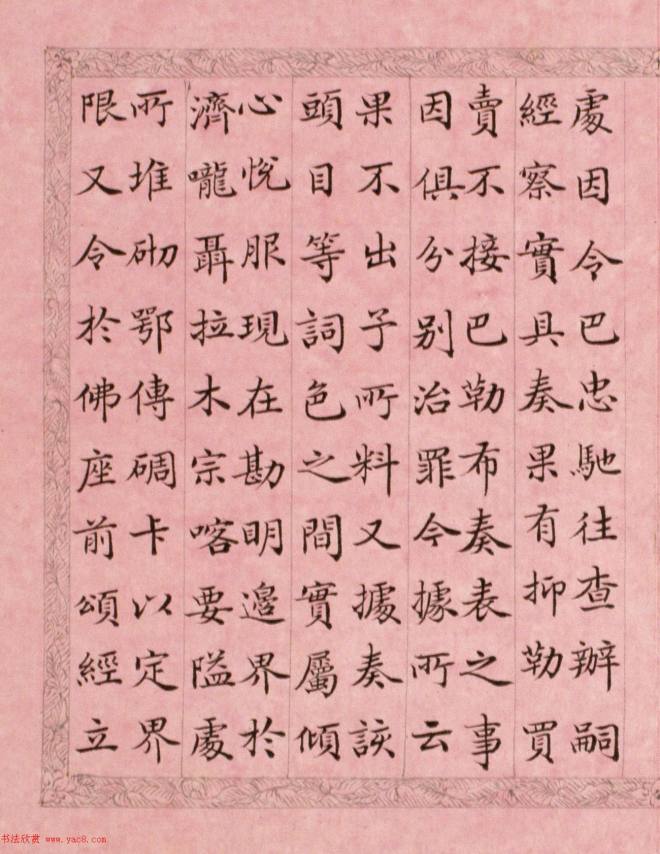 處因令巴忠馳往查辦嗣
經察實具奏果有抑勒買
賣不接巴勒布奏表之事
因俱分別治罪今據所云
果不出予所料又據奏該
頭目等詞色之間實屬傾
心悅服現在勘明邊界於
濟嚨聶拉木宗喀要隘處
所堆砌鄂傳碉卡以定界
限又令於佛座前頌經立
书法欣赏 www.yac8.com